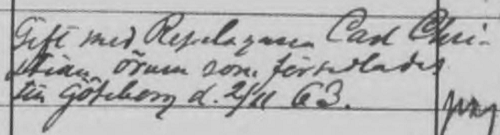 Gift med Repslagaren Carl Chri-
stian Örum som förflyttades
till Göteborg d. 2/11 63.